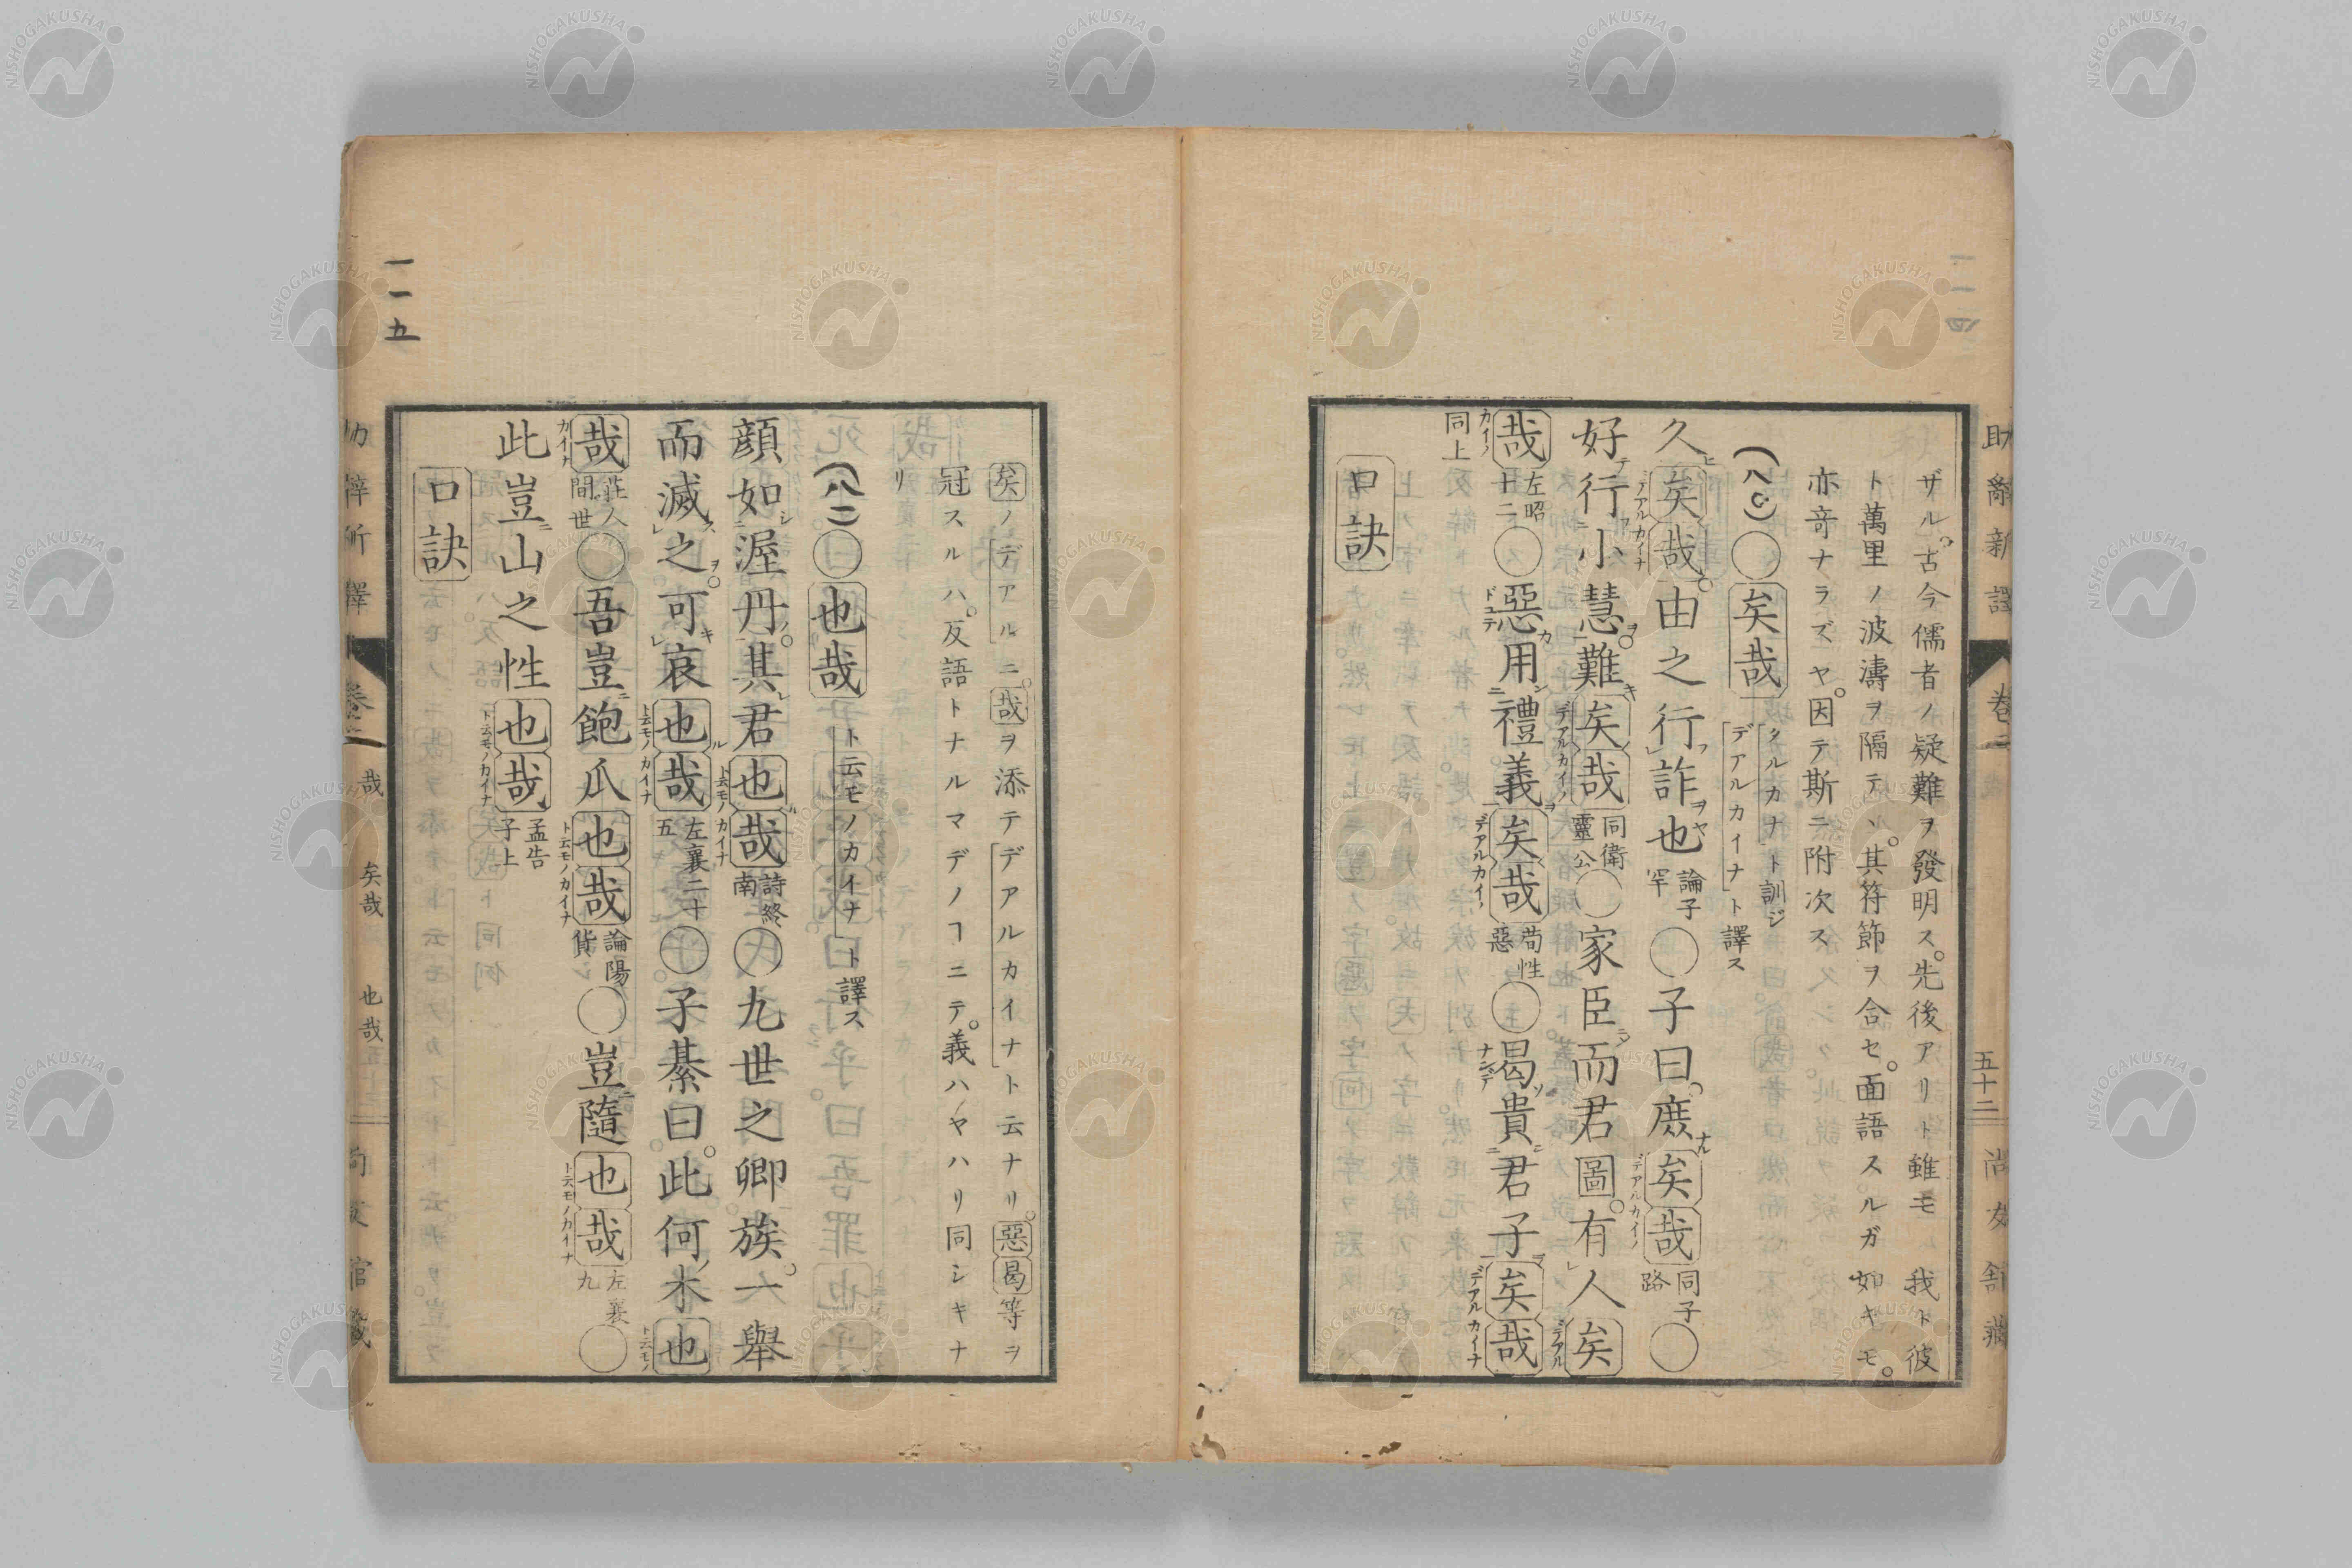 ザル。古今儒者ノ疑難ヲ發明ス。先後アリト雖モ我ト彼
ト萬里ノ波濤ヲ隔テヽ。其符節ヲ合セ。面語スルガ如キモ。
亦竒ナラズヤ。因テ斯ニ附次ス
○矣哉 クルカナト訓ジ デアルカイナト譯ス
久矣哉。由之行詐也 論子罕 ○子曰。庶矣哉 同子路 ○
好行小慧。難矣哉 同衛靈公 ○家臣而君圖。有人矣
哉 左昭十二 ○惡用禮義矣哉 荀性惡 ○曷貴君子矣哉
同上
口訣
矣ノデアルニ。哉ヲ添テデアルカイナト云ナリ。惡曷等ヲ
冠スルハ。反語トナルマデノヿニテ。義ハヤハリ同シキナ
リ
(八二)○也哉 ト云モノカイナト譯ス
顔如渥丹。其君也哉 詩終南 ○九世之卿族。一舉
而滅之。可哀也哉 左襄二十五 ○子綦曰。此何木也
哉 莊人間世 ○吾豈匏瓜也哉 論陽貨 ○豈隨也哉 左襄九 ○
此豈山之性也哉 孟告子上
口訣
助辭新譯 卷二 五十二 尚友舘藏
卷二 哉 矣哉 也哉
一一四
一一五
NISHOGAKUSHA